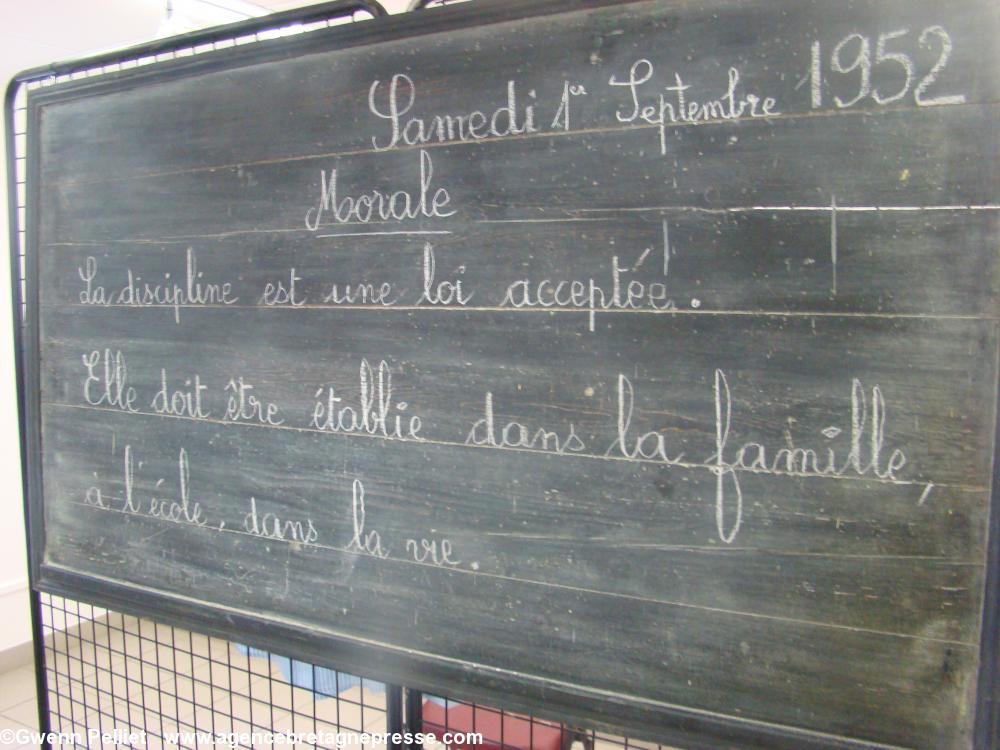 Samedi 1er Septembre 1952
Morale
La discipline est une loi acceptée.
Elle doit être établie dans la famille,
à l'école, dans la vie.
©Gwenn Pelliet www.agencebretagnepresse.com